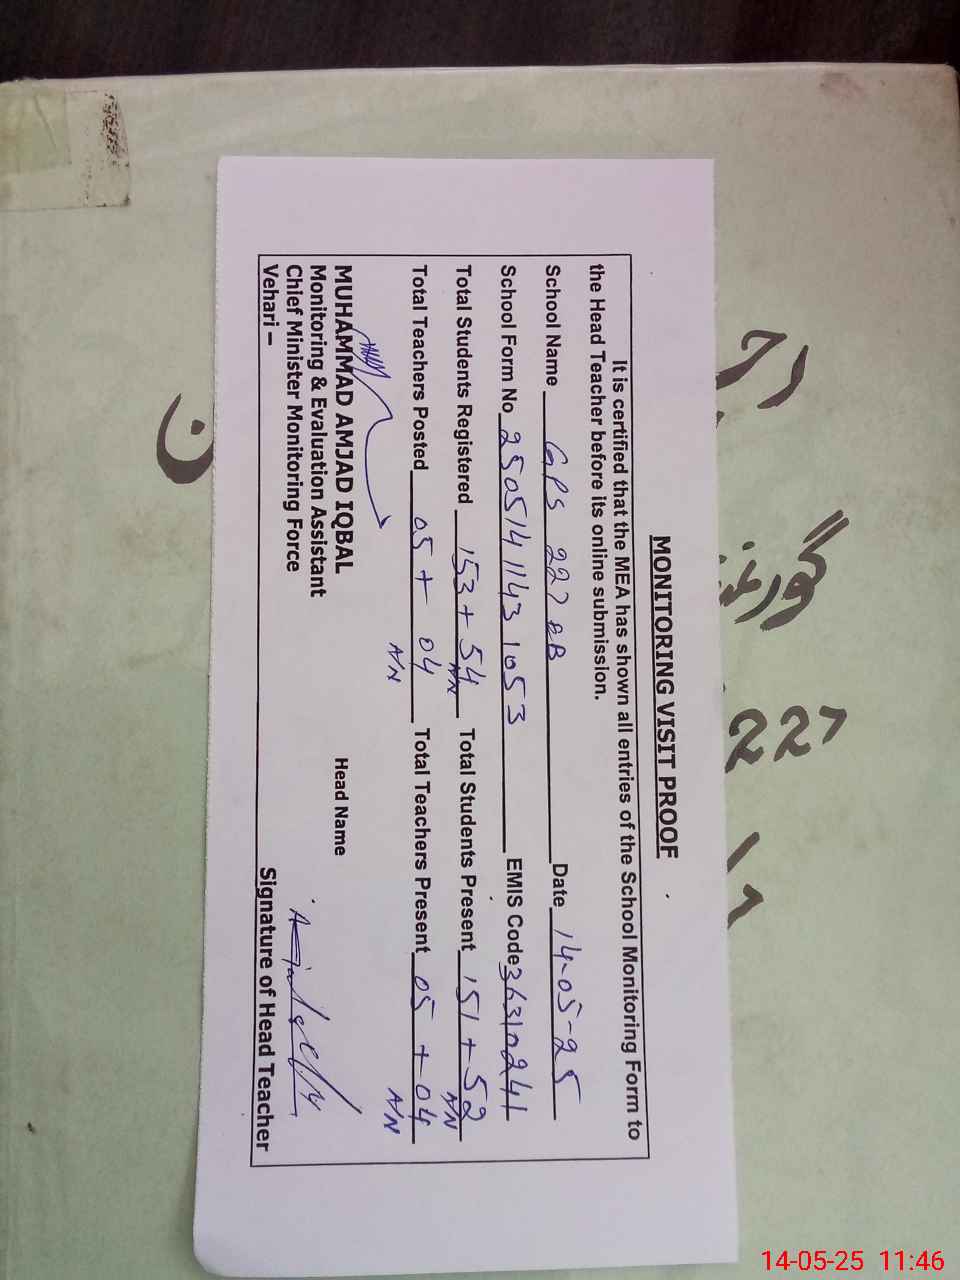 MONITORING VISIT PROOF
It is certified that the MEA has shown all entries of the School Monitoring Form to
the Head Teacher before its online submission.
School Name GPS 227 EB Date 14-05-25
School Form No 2505141143 1053 EMIS Code 36310241
Total Students Registered 153 + 54 Total Students Present 151 + 52
A/N A/N
Total Teachers Posted 05 + 04 Total Teachers Present 05 + 04
A/N A/N
MUHAMMAD AMJAD IQBAL Head Name
Monitoring & Evaluation Assistant
Chief Minister Monitoring Force
Vehari – Signature of Head Teacher
227
14-05-25 11:46